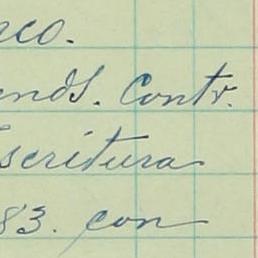 aco.
ends. Contr.
scritura
83. con